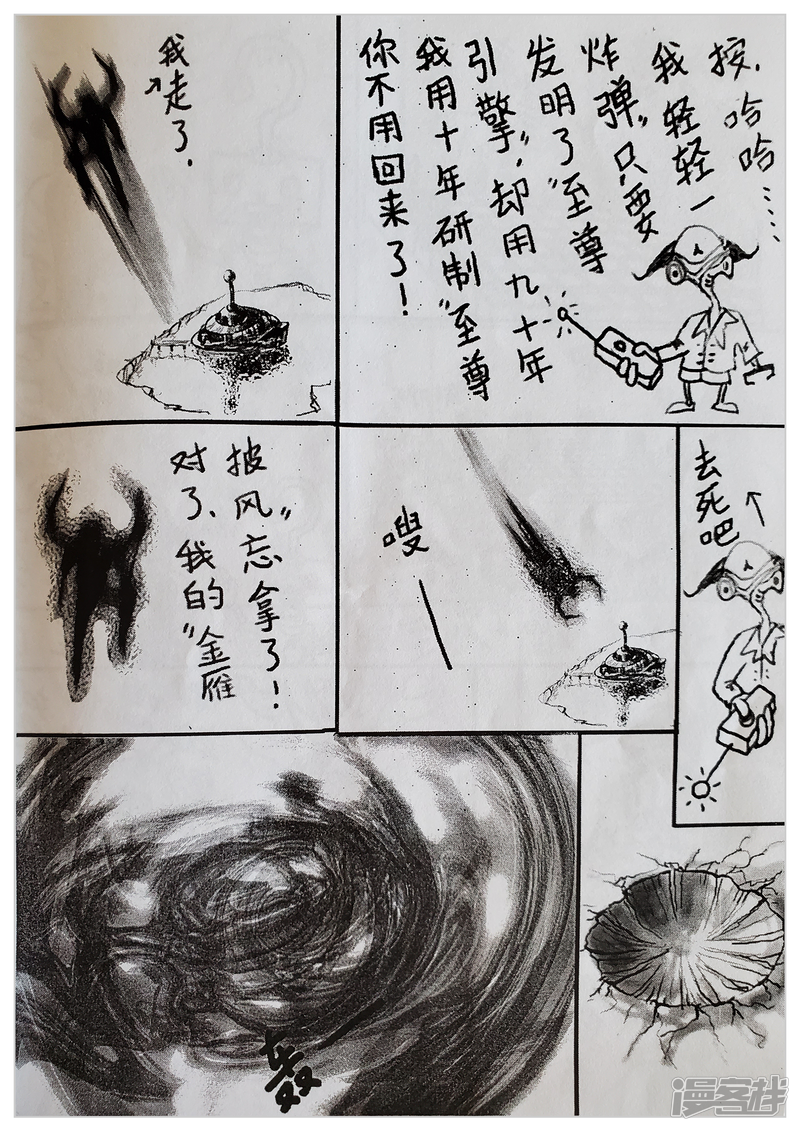 我走了.
你不用回来了！
我用十年研制“至尊
引擎”,却用九十年
发明了“至尊
炸弹”,只要
我轻轻一
按,哈哈……
对了、我的“金雁
披风”忘拿了！
嗖
去死吧
轰
漫客栈